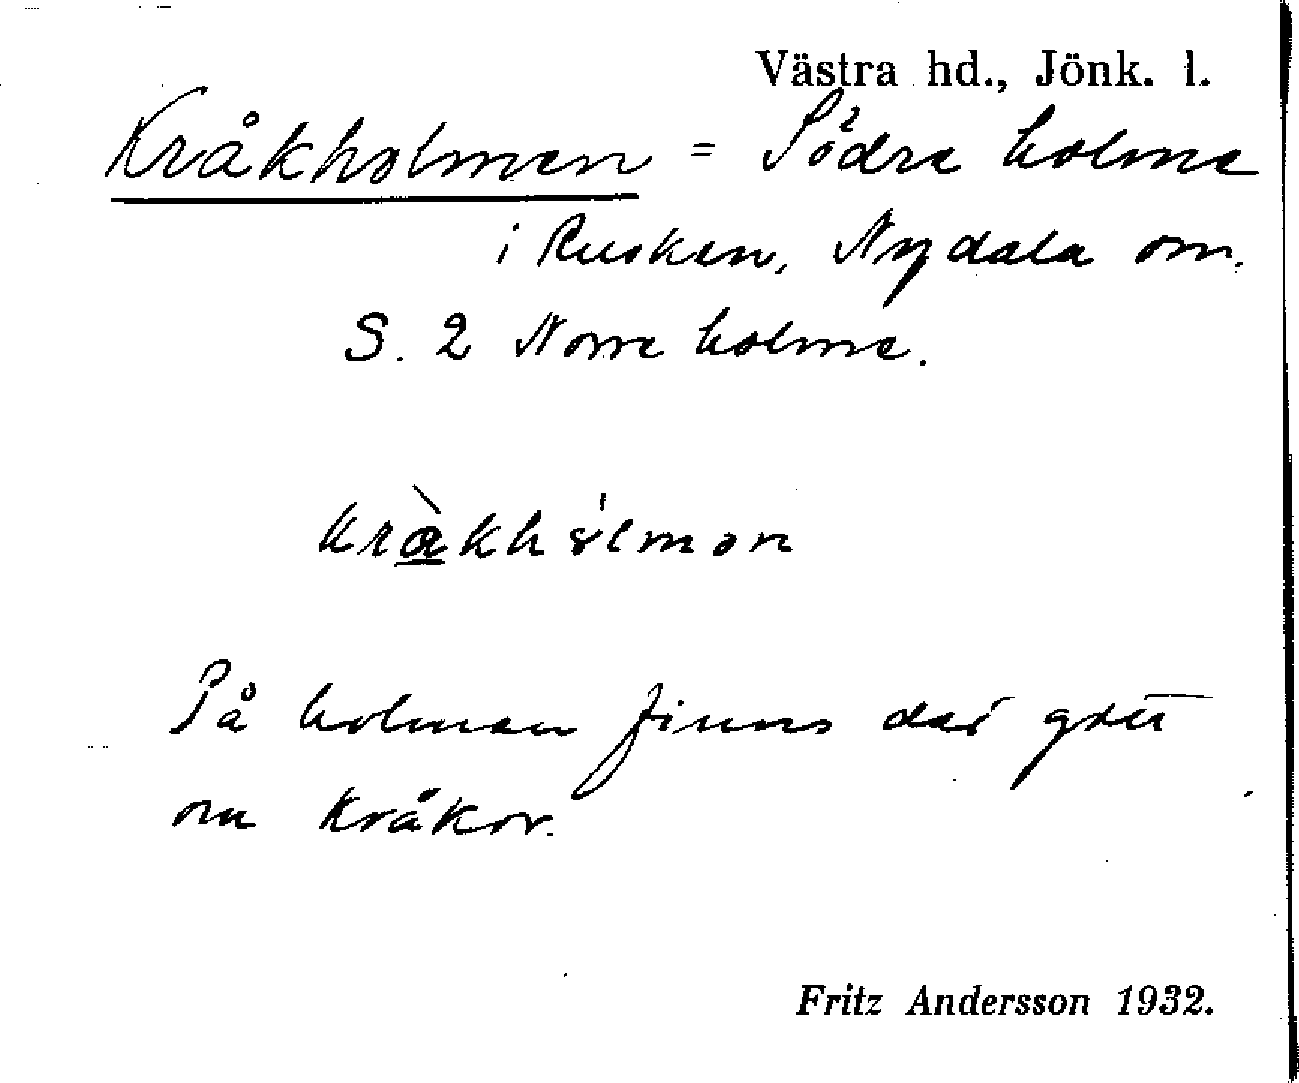 Västra hd., Jönk. l.
Kråkholmen = Södra holme
i Rusken, Nydala sn.
S. 2 Norra holme.
kràkhólmən
På holmen finns det gott
om kråkor.
Fritz Andersson 1932.